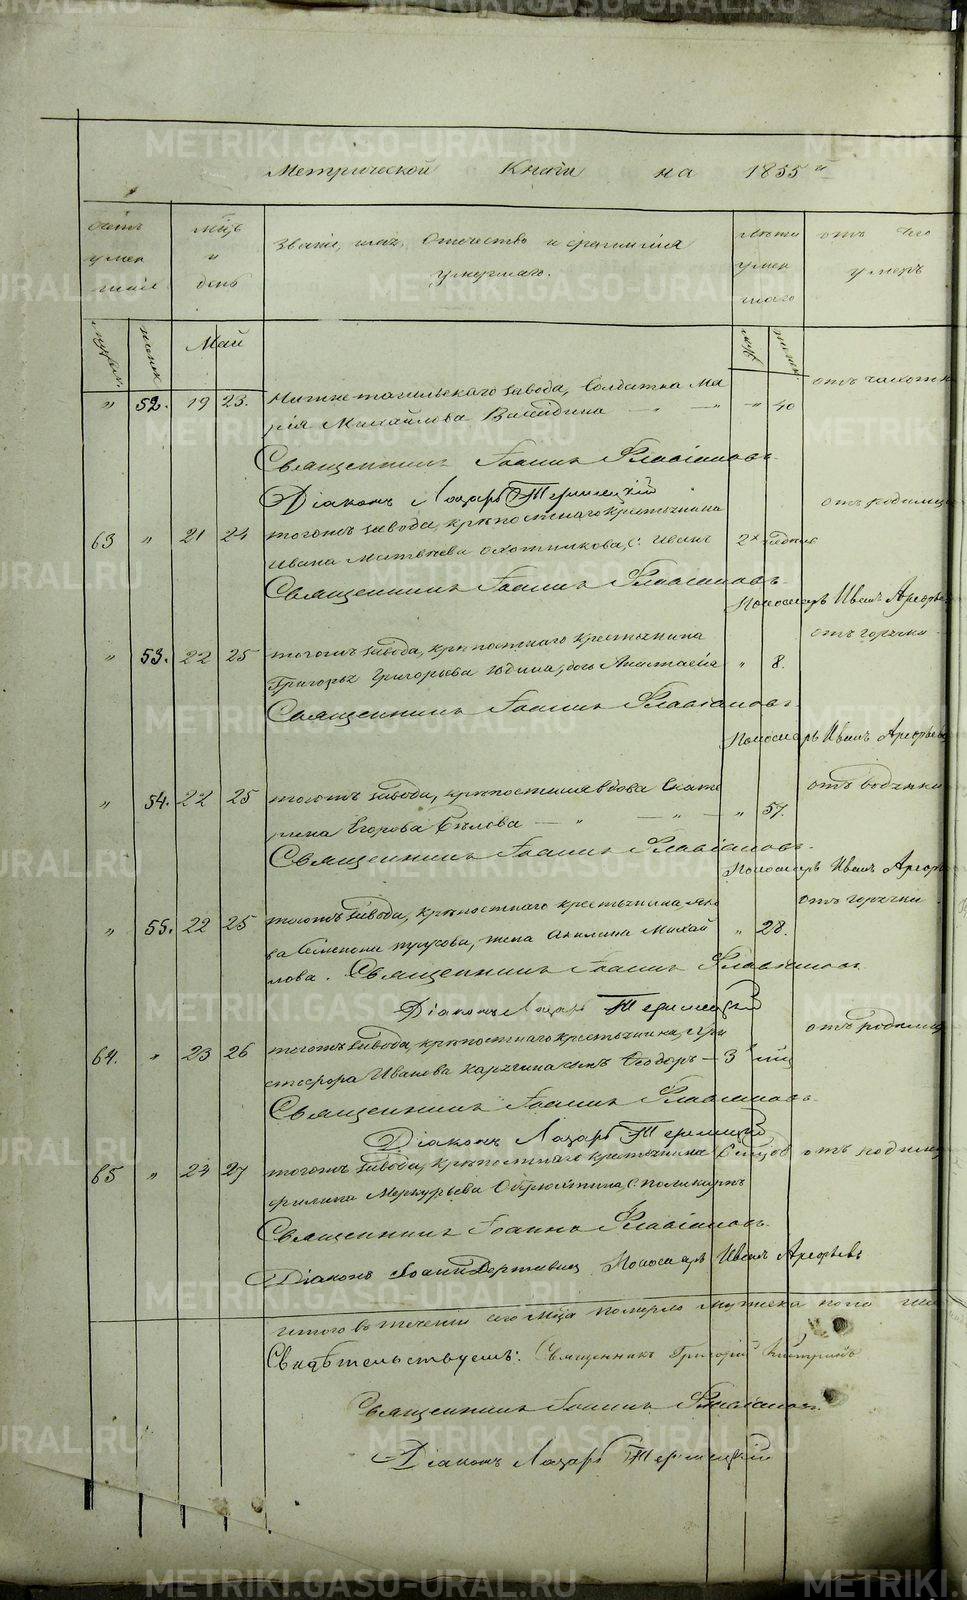 Метрической Книги на 1855й
Счетъ умершихъ
мсцъ и день
Званіе, имя, отечество и фамилія умершаго.
лѣта умершаго
отъ чего умеръ
мужск. женск.
Май
муж. женск.
" 52. 19 23. Нижне-тагильскаго завода, Солдатка Ма
рія Михайлова " 40 отъ чахотк
Священникъ Іоаннъ Флавіановъ
Діаконъ Лазарь
63 " 21 24 тогожъ завода, крѣпостнаго крестьянина
Ивана Матвѣева Охотникова, с: Иванъ 2х недѣль отъ родимца
Священникъ Іоаннъ Флавіановъ
Пономарь Иванъ Арефьевъ
" 53. 22 25 тогожъ завода, крѣпостнаго крестьянина
Григорья Григорьева Юдина, дочь Анастасія " 8. отъ горячки
Священникъ Іоаннъ Флавіановъ
Пономарь Иванъ Арефьевъ
" 54. 22 25 тогожъ завода, крѣпостная вдова Екате
рина Егорова Бѣлова " 57. отъ водянки
Священникъ Іоаннъ Флавіановъ
Пономарь Иванъ Арефь
" 55. 22 25 тогожъ завода, крѣпостнаго крестьянина, Яко
ва Семенова жена Акилина Михай " 28. отъ горячки
лова. Священникъ Іоаннъ Флавіановъ
Діаконъ Лазарь
64. " 23 26 тогожъ завода, крѣпостнаго крестьянина, Хри
стофора Иванова сынъ Ѳеодоръ 3 отъ родимц
Священникъ Іоаннъ Флавіановъ
Діаконъ Лазарь
65 " 24 27 тогожъ завода, крѣпостнаго крестьянина отъ родимц
Филипа Меркурьева с. Поликарпъ
Священникъ Іоаннъ Флавіановъ
Діаконъ Іоаннъ Державинъ Пономарь Иванъ Арефьевъ
Итого въ теченіи сего мсца померло мужеска пола
Свидѣтельствуемъ: Священникъ Григорій
Священникъ Іоаннъ Флавіановъ
Діаконъ Лазарь
METRIKI.GASO-URAL.RU